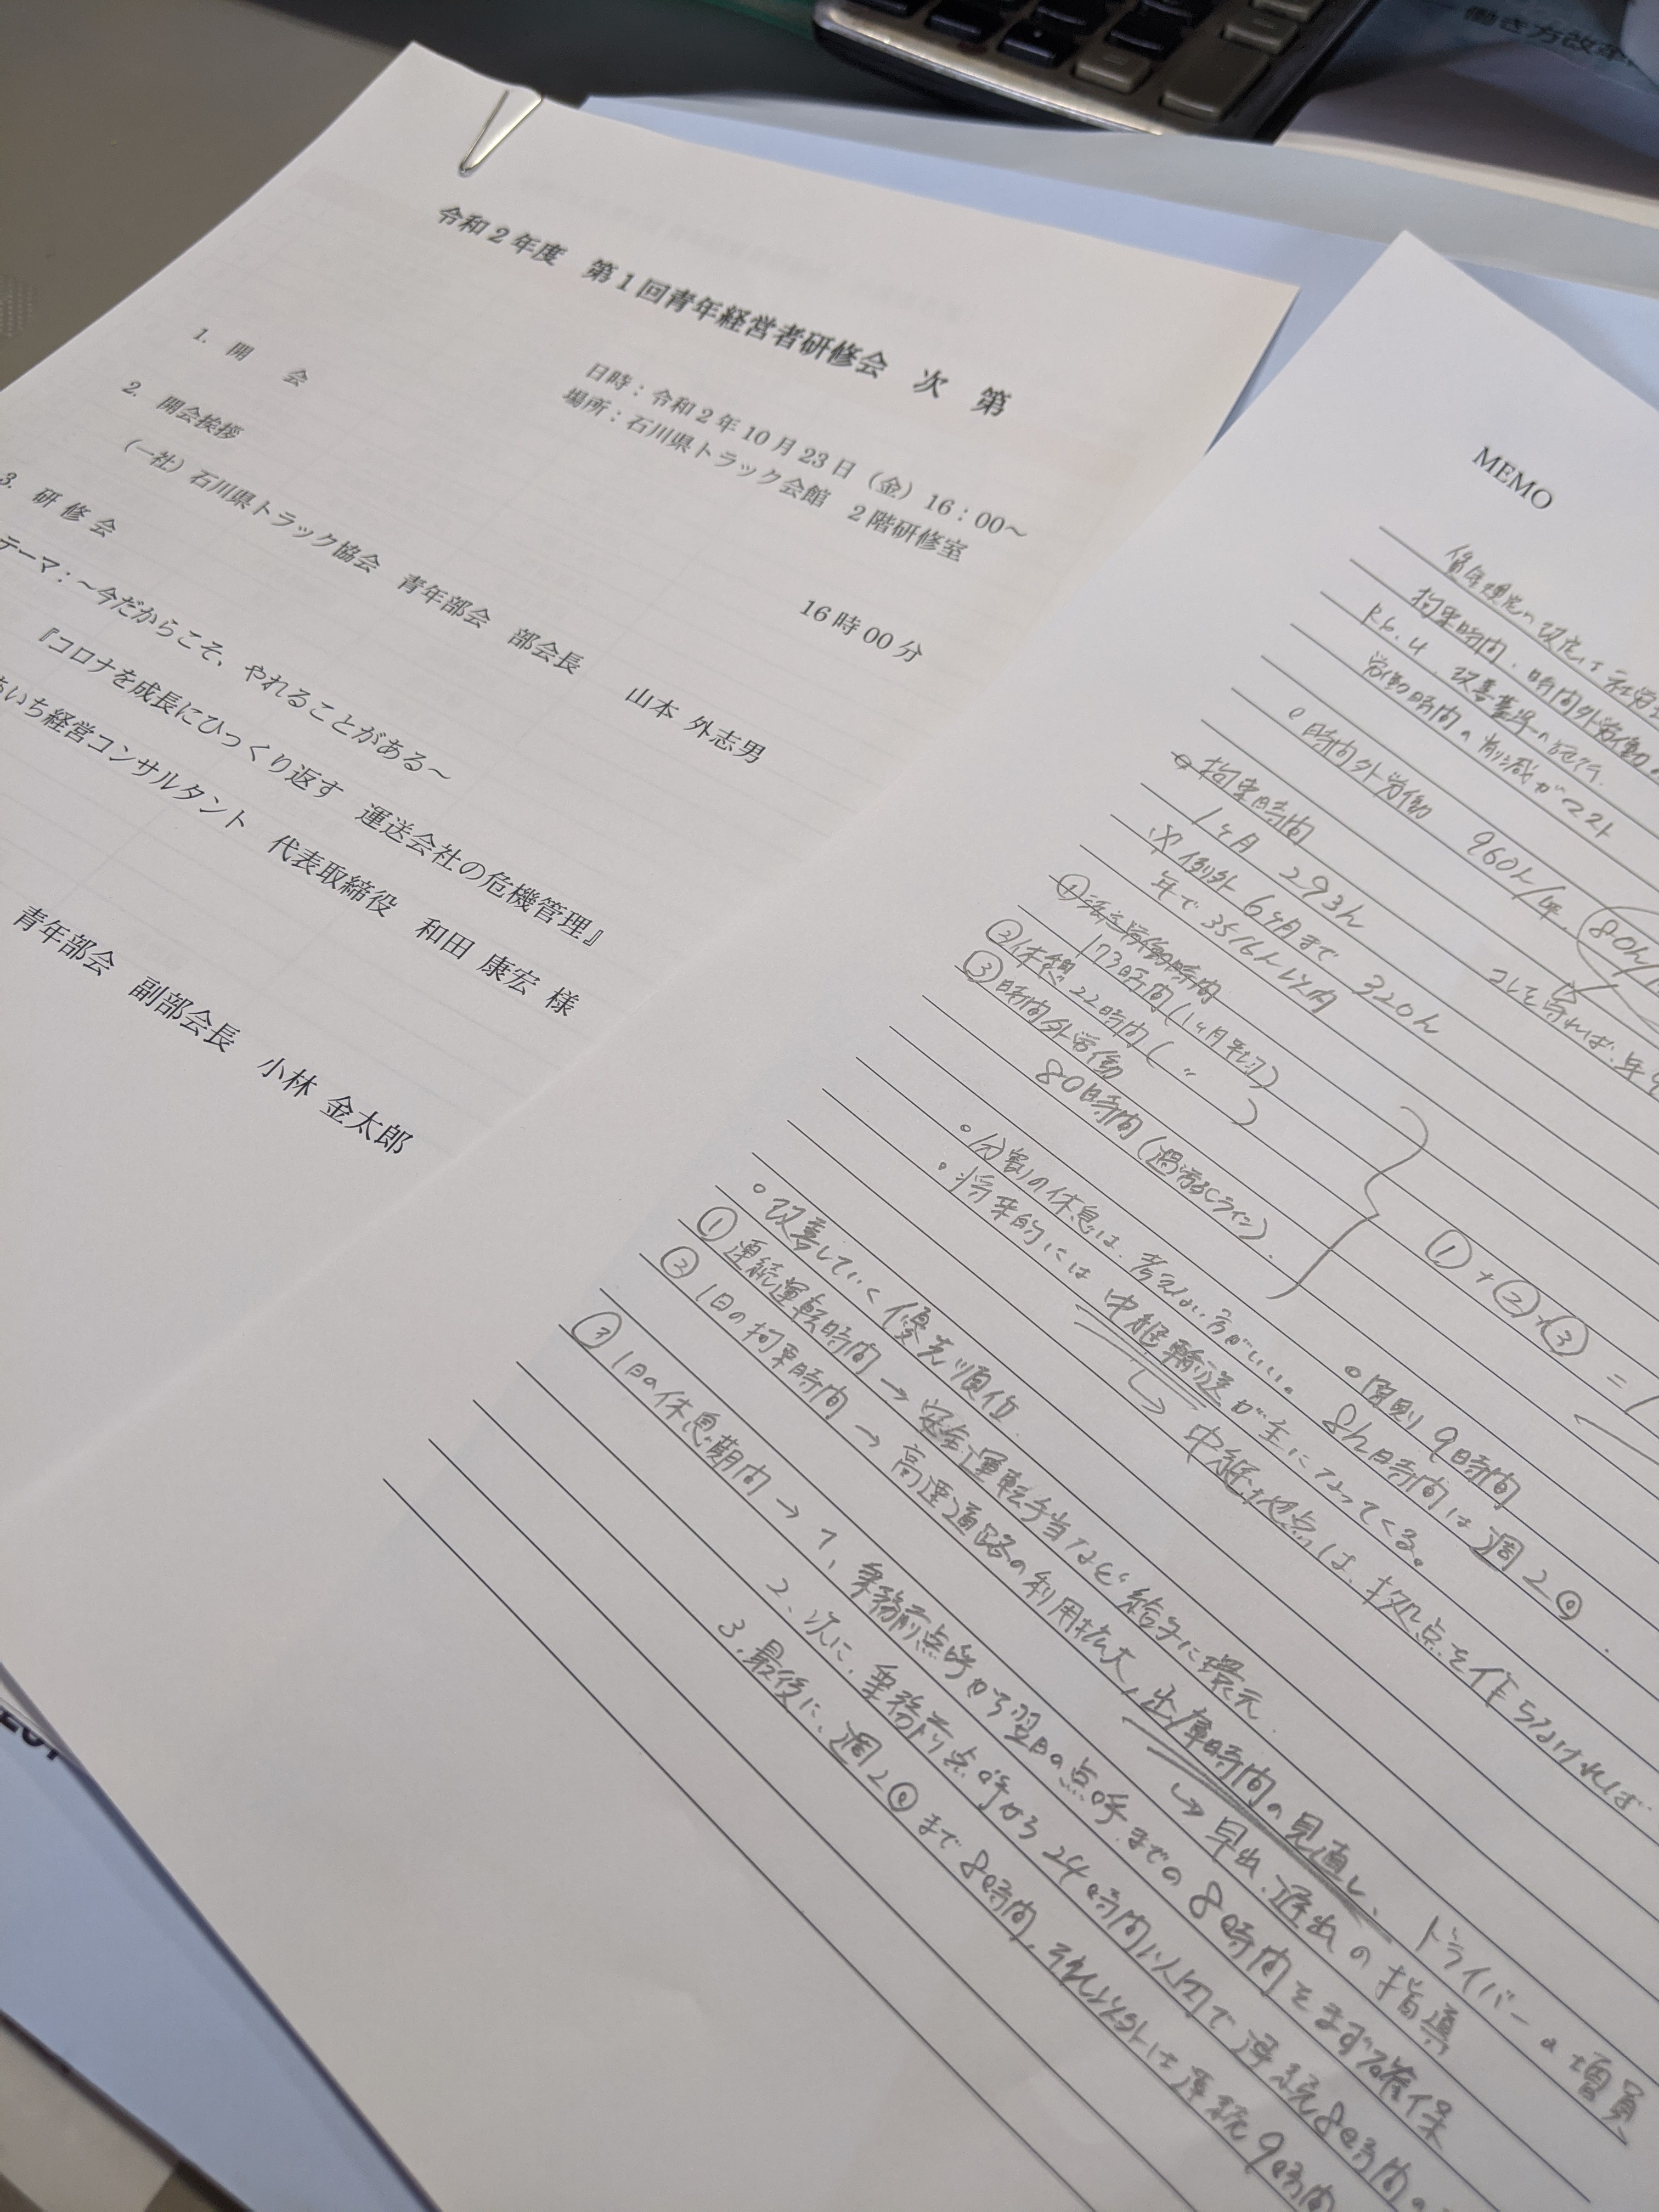 働き方改革
令和2年度 第1回青年経営者研修会 次 第
日時：令和2年10月23日（金）16：00～
場所：石川県トラック会館 2階研修室
1. 開 会
16時00分
2. 開会挨拶
（一社）石川県トラック協会 青年部会 部会長 山本 外志男
3. 研 修 会
テーマ：～今だからこそ、やれることがある～
『コロナを成長にひっくり返す 運送会社の危機管理』
あいち経営コンサルタント 代表取締役 和田 康宏 様
青年部会 副部会長 小林 金太郎
MEMO
賃金規定の改定は
拘束時間、時間外労働
R6.4 改善基準の
労働時間の削減がマスト
○時間外労働 960h/年
80h/
コレを守れば、年
○拘束時間
1ヶ月 293h
※例外 6ヶ月まで 320h
年で3516h以内
①法定労働時間
173時間(1ヶ月平均)
②休憩 22時間( 〃 )
③時間外労働
80時間(過労死ライン)
①+②+③ = 1
○分割の休息は、考えない方がいい。
○原則 9時間
8h時間は週2回
・将来的には 中継輸送が主になってくる。
↳ 中継地点は、拠点を作らなければ…
○改善していく優先順位
①連続運転時間 → 安全運転手当など給与に還元
②1日の拘束時間 → 高速道路の利用拡大、出庫時間の見直し、ドライバーの増員
↳ 早出、遅出の指導
③1日の休息期間 → 1、乗務前点呼から翌日の点呼までの8時間をまず確保
2、次に、乗務前点呼から24時間以内で連続8時間の
3、最後に、週2回まで8時間、それ以外は連続9時間